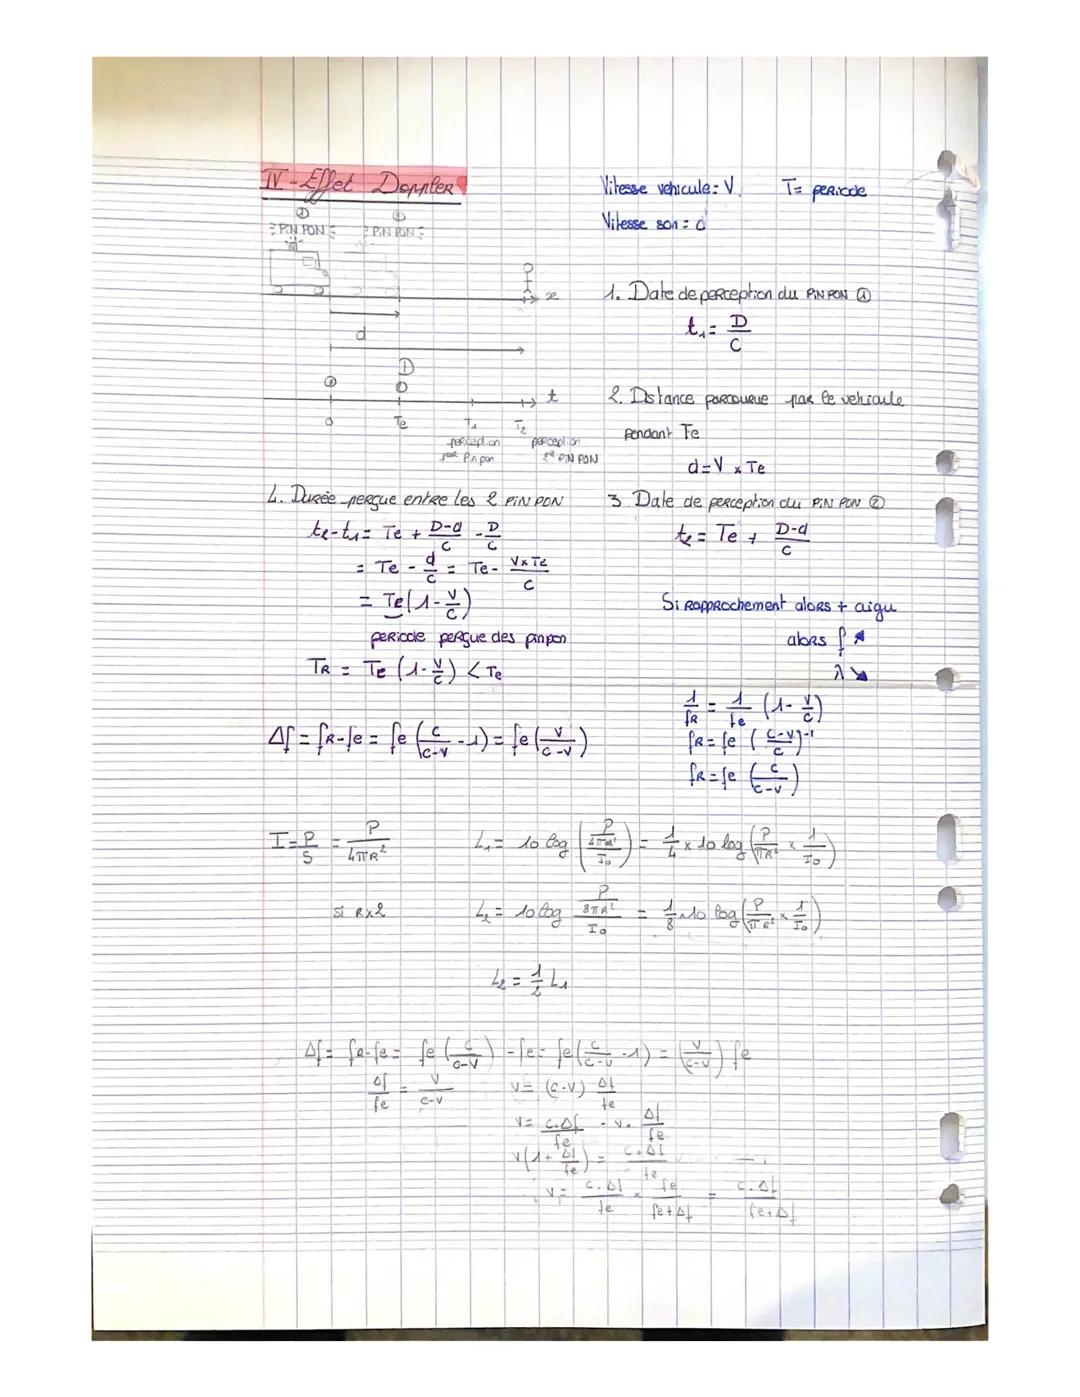 IV - Effet Doppler
Vitesse vehicule: V T= periode
Vitesse son = c
① ②
PIN PON PIN PON
x
d
D
1. Date de perception du PIN PON ①
t₁ = D/C
① ②
t
0 Te T₁ T₂
perception perception
1er Pin pon 2e PIN PON
2. Distance parcourue par le vehicule
pendant Te
d = V x Te
3 Date de perception du PIN PON ②
t₂ = Te + (D-d)/C
4. Durée perçue entre les 2 PIN PON
t₂-t₁ = Te + (D-d)/C - D/C
= Te - d/C = Te - (V x Te)/C
= Te(1 - V/C)
periode perçue des pinpon
TR = Te (1 - V/C) < Te
Si Rapprochement alors + aigu
alors f ↗
λ ↘
1/fR = 1/fe (1 - V/C)
fR = fe ((C-V)/C)⁻¹
fR = fe (C/(C-V))
Δf = fR-fe = fe (C/(C-V) - 1) = fe (V/(C-V))
I = P/S = P/(4πR²)
L₁ = 10 log ((P/(4πR²))/I₀) = 1/4 x 10 log (P/(πR²) x 1/I₀)
si Rx2
L₂ = 10 log (P/(8πR²))/I₀ = 1/8 x 10 log (P/(πR²) x 1/I₀)
L₂ = 1/2 L₁
Δf = fR-fe = fe (C/(C-V)) - fe = fe (C/(C-V) - 1) = (V/(C-V)) fe
Δf/fe = V/(C-V)
V = (C-V) Δf/fe
V = C.Δf/fe - V. Δf/fe
V(1 + Δf/fe) = C.Δf/fe
V = C.Δf/fe x fe/(fe+Δf) = C.Δf/(fe+Δf)